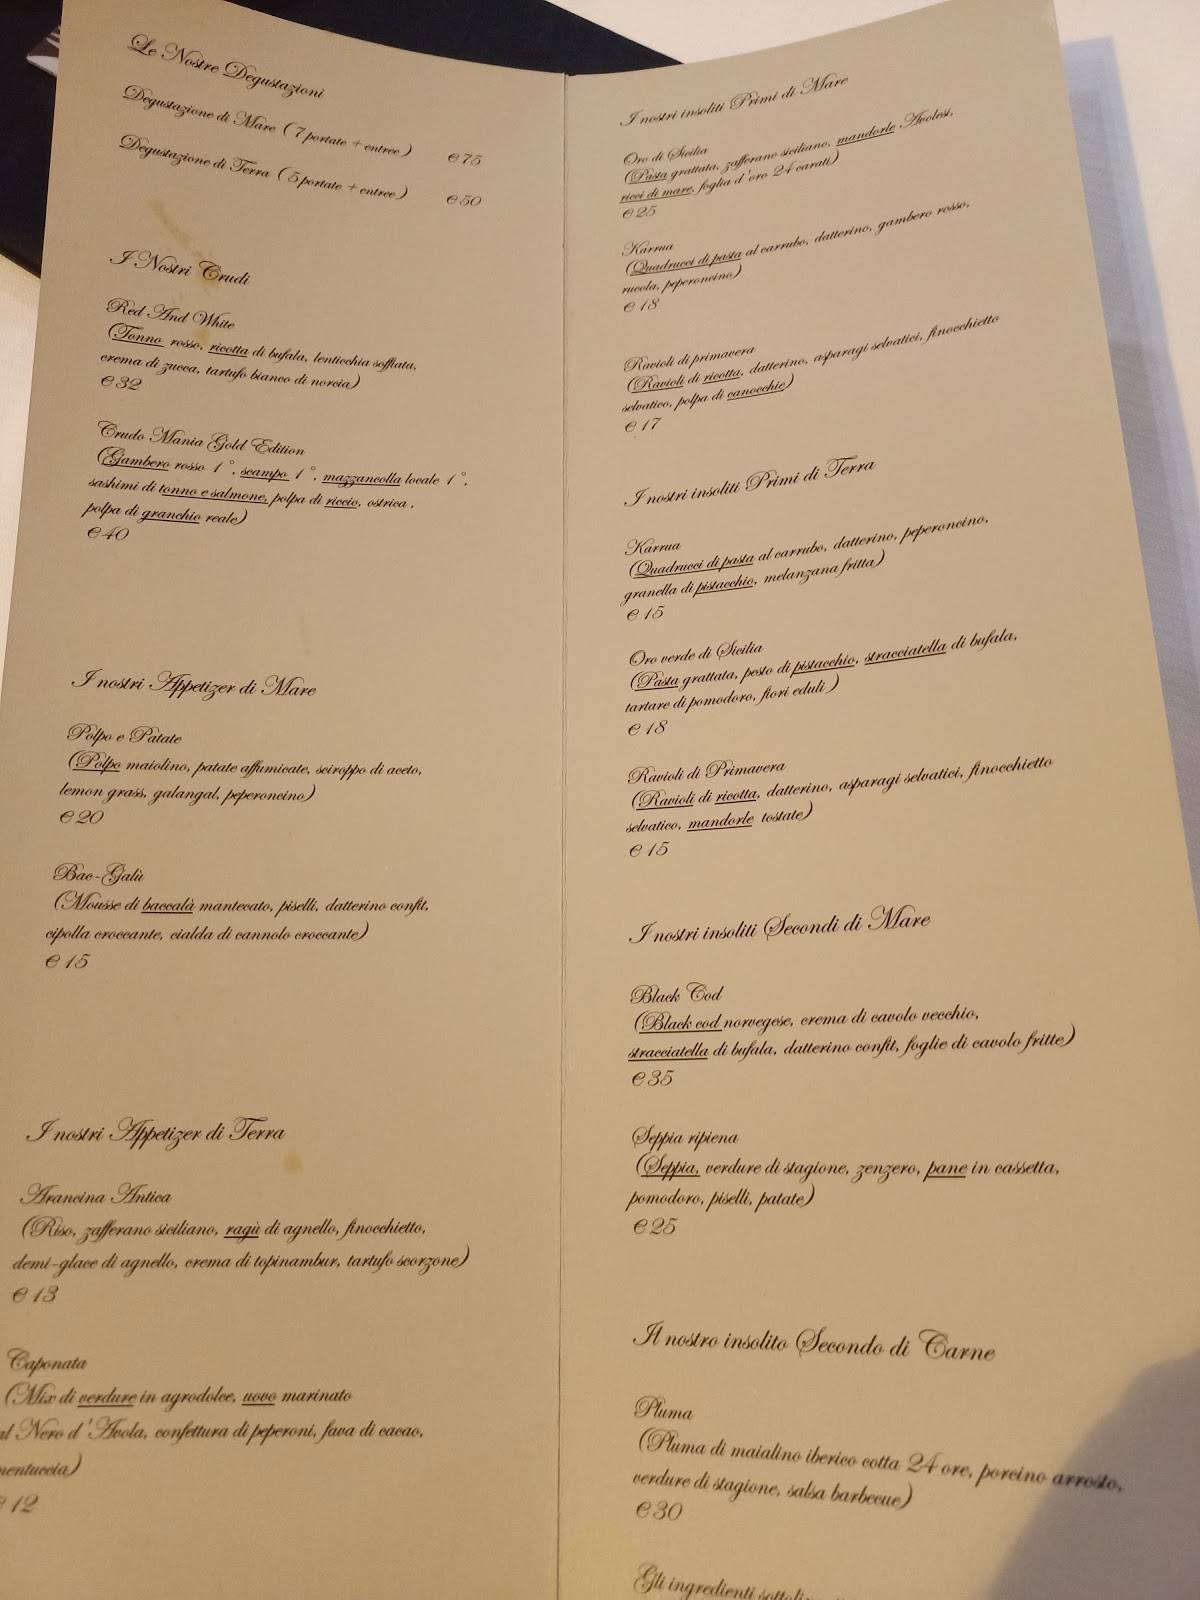 Le Nostre Degustazioni
Degustazione di Mare (7 portate + entree) €75
Degustazione di Terra (5 portate + entree) €50
I Nostri Crudi
Red And White
(Tonno rosso, ricotta di bufala, lenticchia soffiata,
crema di zucca, tartufo bianco di norcia)
€32
Crudo Mania Gold Edition
(Gambero rosso 1°, scampo 1°, mazzancolla locale 1°,
sashimi di tonno e salmone, polpa di riccio, ostrica,
polpa di granchio reale)
€40
I nostri Appetizer di Mare
Polpo e Patate
(Polpo maiolino, patate affumicate, sciroppo di aceto,
lemon grass, galangal, peperoncino)
€20
Bac-Galù
(Mousse di baccalà mantecato, piselli, datterino confit,
cipolla croccante, cialda di cannolo croccante)
€15
I nostri Appetizer di Terra
Arancina Antica
(Riso, zafferano siciliano, ragù di agnello, finocchietto,
demi-glace di agnello, crema di topinambur, tartufo scorzone)
€13
Caponata
(Mix di verdure in agrodolce, uovo marinato
al Nero d'Avola, confettura di peperoni, fava di cacao,
mentuccia)
€12
I nostri insoliti Primi di Mare
Oro di Sicilia
(Pasta grattata, zafferano siciliano, mandorle Avolesi,
ricci di mare, foglia d'oro 24 carati)
€25
Karrua
(Quadrucci di pasta al carrubo, datterino, gambero rosso,
rucola, peperoncino)
€18
Ravioli di primavera
(Ravioli di ricotta, datterino, asparagi selvatici, finocchietto
selvatico, polpa di canocchie)
€17
I nostri insoliti Primi di Terra
Karrua
(Quadrucci di pasta al carrubo, datterino, peperoncino,
granella di pistacchio, melanzana fritta)
€15
Oro verde di Sicilia
(Pasta grattata, pesto di pistacchio, stracciatella di bufala,
tartare di pomodoro, fiori eduli)
€18
Ravioli di Primavera
(Ravioli di ricotta, datterino, asparagi selvatici, finocchietto
selvatico, mandorle tostate)
€15
I nostri insoliti Secondi di Mare
Black Cod
(Black cod norvegese, crema di cavolo vecchio,
stracciatella di bufala, datterino confit, foglie di cavolo fritte)
€35
Seppia ripiena
(Seppia, verdure di stagione, zenzero, pane in cassetta,
pomodoro, piselli, patate)
€25
Il nostro insolito Secondo di Carne
Pluma
(Pluma di maialino iberico cotta 24 ore, porcino arrosto,
verdure di stagione, salsa barbecue)
€30
Gli ingredienti